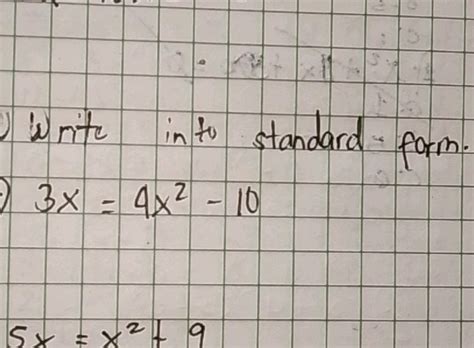 ) Write into standard form.
) 3x = 4x² - 10
5x = x² + 9